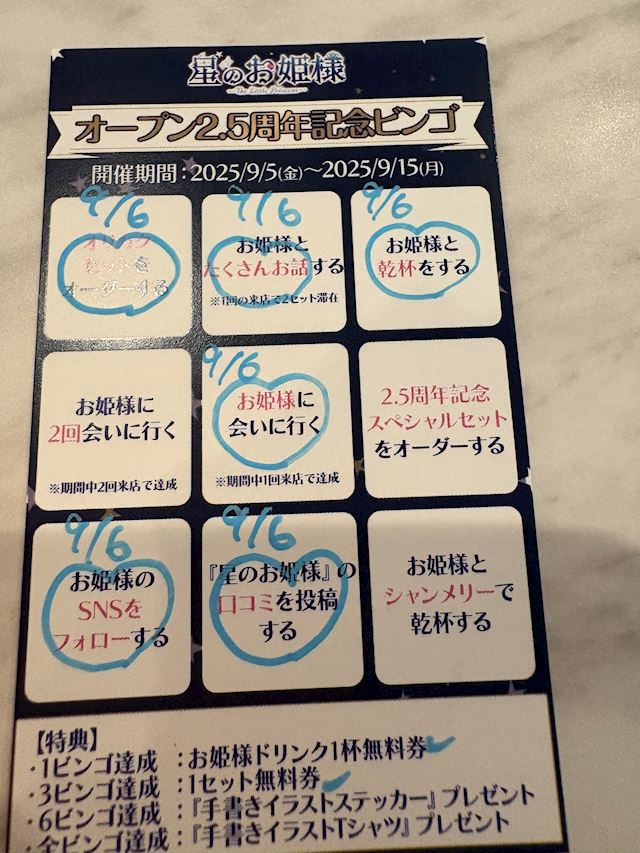 星のお姫様
The Little Princess
オープン2.5周年記念ビンゴ
開催期間：2025/9/5(金)～2025/9/15(月)
9/6
オリシャン
セットを
オーダーする
9/6
お姫様と
たくさんお話する
※1回の来店で2セット滞在
9/6
お姫様と
乾杯をする
お姫様に
2回会いに行く
※期間中2回来店で達成
9/6
お姫様に
会いに行く
※期間中1回来店で達成
2.5周年記念
スペシャルセット
をオーダーする
9/6
お姫様の
SNSを
フォローする
9/6
『星のお姫様』の
口コミを投稿
する
お姫様と
シャンメリーで
乾杯する
【特典】
・1ビンゴ達成：お姫様ドリンク1杯無料券
・3ビンゴ達成：1セット無料券
・6ビンゴ達成：『手書きイラストステッカー』プレゼント
・全ビンゴ達成：『手書きイラストTシャツ』プレゼント